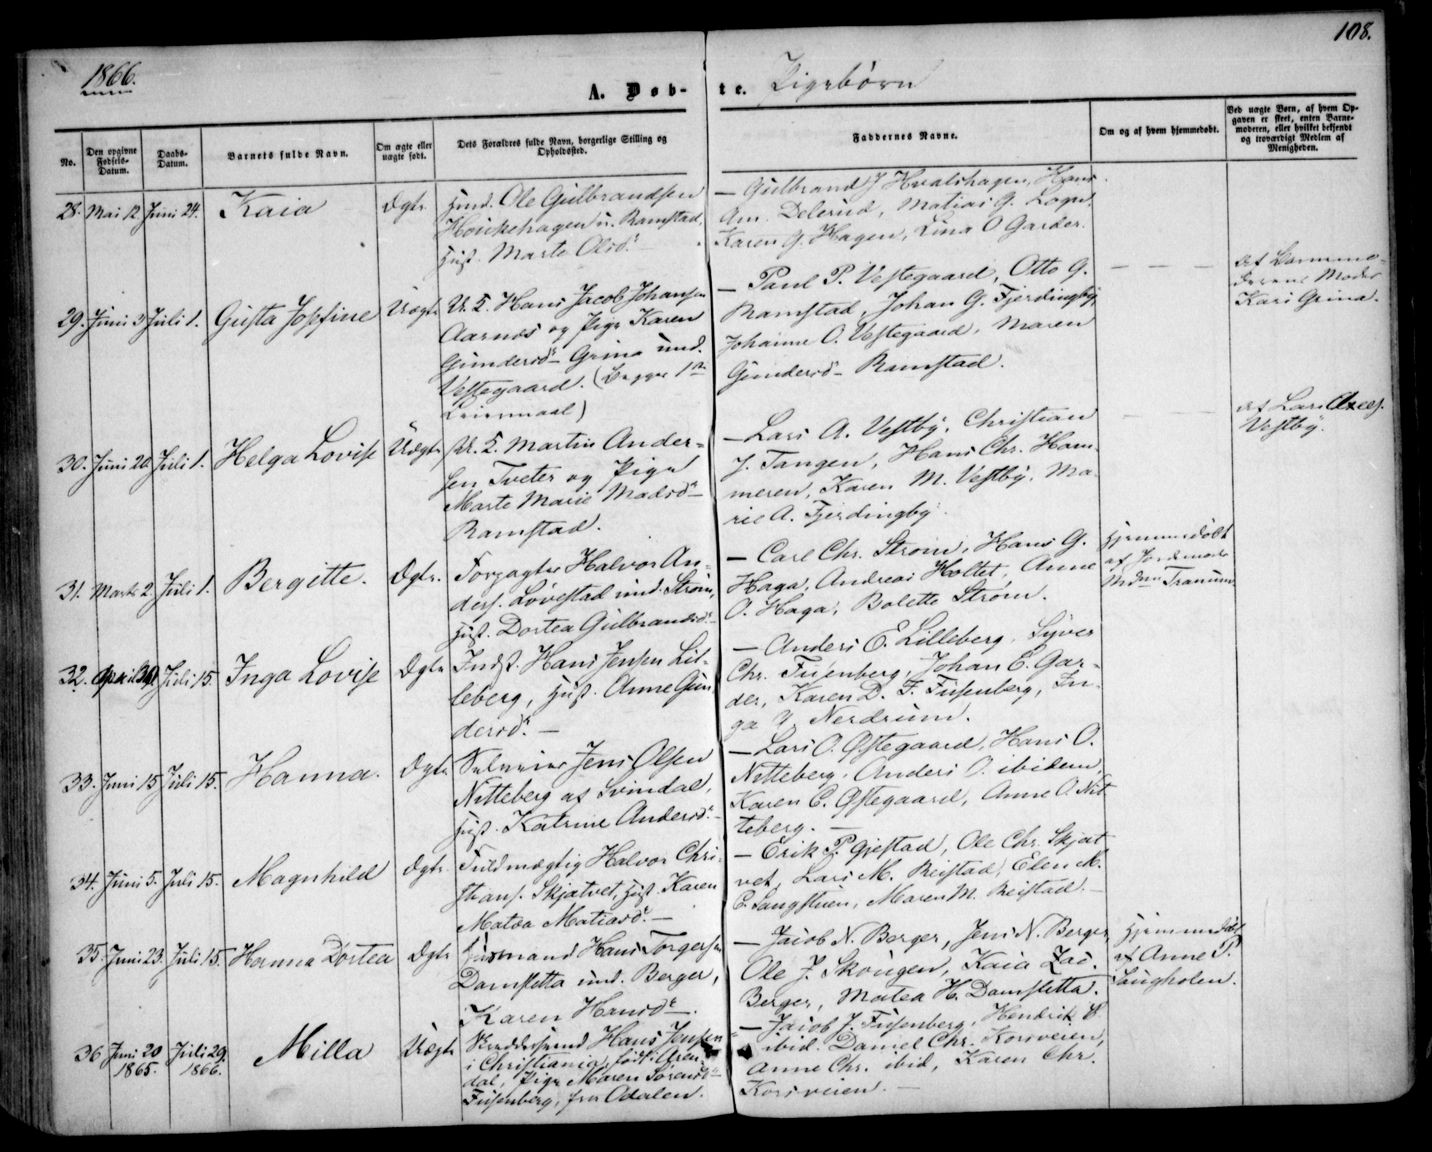 1866.
108.
A. Døb- te. Pigebørn
No.
Den opgivne Fødsels-Datum.
Daabs-Datum.
Barnets fulde Navn.
Om ægte eller uægte født.
Dets Forældres fulde Navn, borgerlige Stilling og Opholdssted.
Faddernes Navne.
Om og af hvem hjemmedøbt.
Ved uægte Børn, af hvem Opgaven er skeet, enten Barnemoderen, eller hvilket bekjendt og troværdigt Medlem af Menigheden.
28. Mai 12. Juni 24. Kaia Ægte
Husmd. Ole Gulbrandsen
u. Ramstad,
Hust. Marte Olsdr
– Gulbrand J Hvalshagen, Hans
Am. Delerud, Matias G.
Karen G. Hagen, Lina O Garder.
29. Juni 3 Juli 1. Gusta Josfine Uægte
U. K. Hans Jacob Johansen
Aarnæs og Pige Karen
Gundersdr Grina und.
Vestegaard. (Begges 1ste
Leiermaal)
– Paul P. Vestegaard, Otto G.
Ramstad, Johan G. Fjerdingby
Johanne O. Vestegaard, Maren
Gundersdr Ramstad.
— — —
det Barnemo-
derens Moder
Kari Grina.
30. Juni 20. Juli 1. Helga Lovise Uægte
U. K. Martin Ander-
sen Tveter og Pige
Marte Marie Madsdr
Ramstad.
– Lars A. Vestby, Christian
J. Tangen, Hans Chr. Ham-
meren, Karen M. Vestby, Ma-
rie A. Fjerdingby.
— — —
det Lars Axels.
Vestby.
31. Marts 2. Juli 1. Bergitte. Ægte.
Forpagter Halvor An-
ders. Løvestad und. Strøm,
Hust. Dortea Gulbrandsdr
– Carl Chr. Strøm, Hans G.
Haga, Andreas Holtet, Anne
O. Haga, Bolette Strøm.
Hjemmedøbt
af Jordemoder
Mdm Tranum
32. April Juli 15. Inga Lovise Ægte
Indst. Hans Jensen Lil-
leberg, Hust. Anne Gun
dersdr. –
– Anders E. Lilleberg, Syver
Chr. Fusenberg, Johan E. Gar-
der, Karen D. F. Fusenberg, In-
ga Nerdrum.
33. Juni 15 Juli 15. Hanna. Ægte
Selveier Jens Olsen
Nitteberg af Svindal,
Hust. Katrine Andersdr –
– Lars O. Østegaard, Hans O.
Nitteberg, Anders O. ibidem,
Karen E. Østegaard, Anne O. Nit
teberg. –
34. Juni 5. Juli 15. Magnhild Ægte
Fuldmægtig Halvor Chri-
stians. Skjatvet, Hust. Karen
Matea Matiasdr –
– Erik P. Gjestad, Ole Chr. Skjat
vet, Lars M. Reistad, Elen M.
E. Langstuen, Maren M. Reistad. –
35. Juni 23. Juli 15. Hanna Dortea Ægte
Husmand Hans Torgersen
Damsletta und. Berger,
Karen Hansdr –.
– Jacob N. Berger, Jens N. Berger
Ole J. Skougen, Kaia Zac.
Berger, Matea H. Damsletta.
Hjemmedøbt
af Anne P.
Haugholen.
36. Juni 20 1865. Juli 29 1866. Milla Uægte
Skræddersvend Hans Jensen
i Christiania, født i Aren-
dal, Pige Maren Sørensdr
Fusenberg, fra Odalen.
– Jacob J. Fusenberg, Hendrik H
ibid. Daniel Chr. Korsveien,
Anne Chr. ibid, Karen Chr.
Korsveien. –